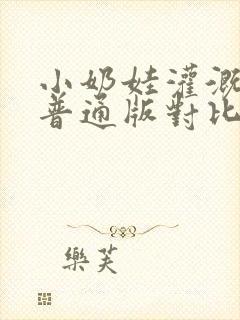 小奶娃灌溉
普通版對比
樂芙